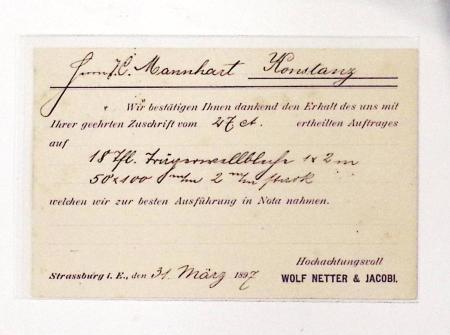 Herrn J. C. Mannhart Konstanz
Wir bestätigen Ihnen dankend den Erhalt des uns mit
Ihrer geehrten Zuschrift vom 27 ct. ertheilten Auftrages
auf
18 Tfl. Trägerwellbleche 1 x 2 m
50 x 100 m/m 2 m/m stark
welchen wir zur besten Ausführung in Nota nahmen.
Hochachtungsvoll
Strassburg i. E., den 31. März 1897 WOLF NETTER & JACOBI.